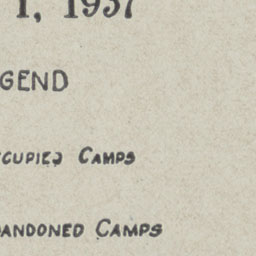 1, 1937
GEND
CCUPIED CAMPS
ANDONED CAMPS